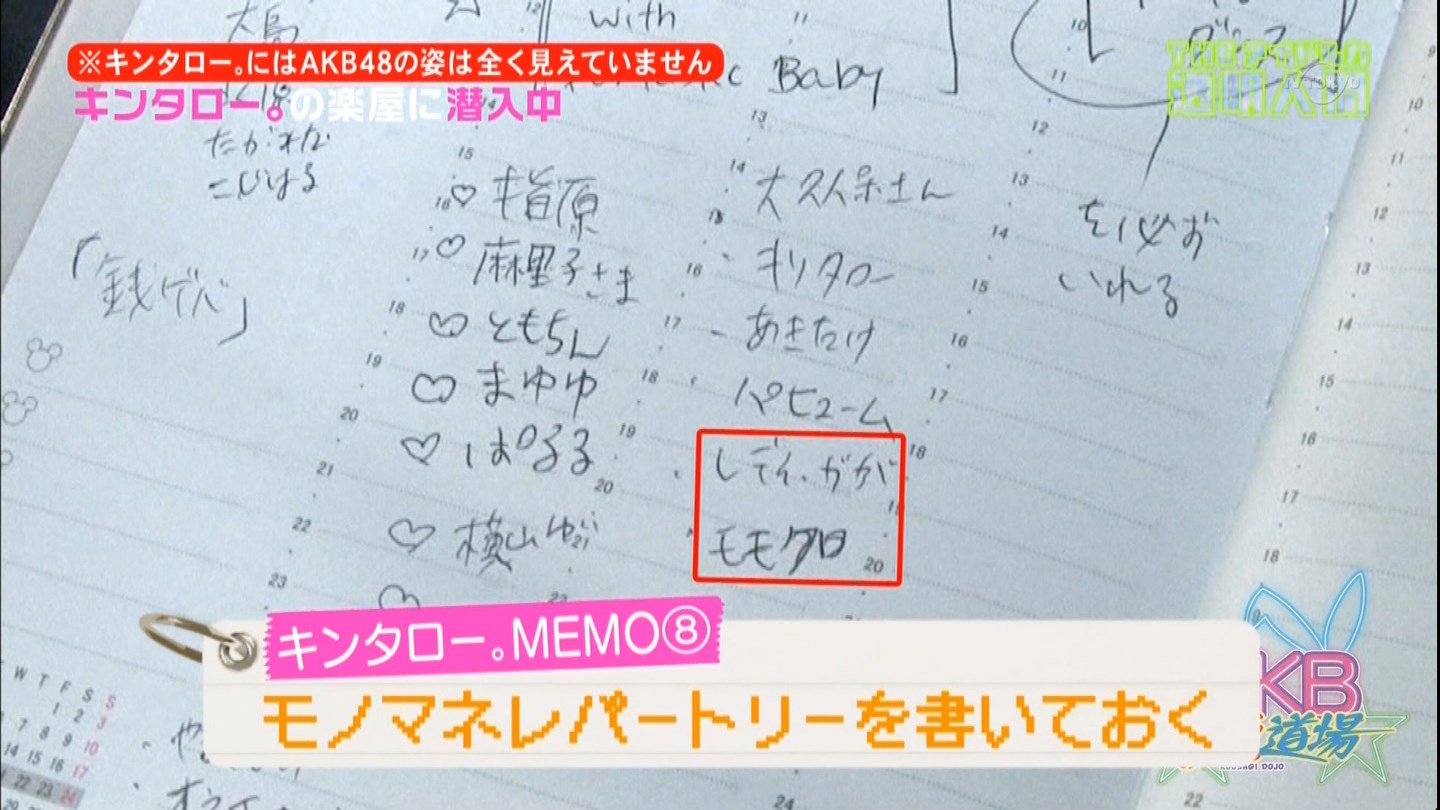 ※キンタロー。にはAKB48の姿は全く見えていません
キンタロー。の楽屋に潜入中
THEアイドル
透明人間
TV TOKYO
大島
with
Baby
たかみな
こじはる
「銭ゲバ」
♡指原
♡麻里子さま
♡ともちん
♡まゆゆ
♡ぱるる
♡横山ゆい
大久保さん
キリタロー
あきたけ
パヒューム
レディ・ガガ
モモクロ
を必ず
いれる
キンタロー。MEMO⑧
モノマネレパートリーを書いておく
W T F S S
1 2 3
7 8 9 10
14 15 16 17
22 23 24
KB
道場
USAGI DOJO